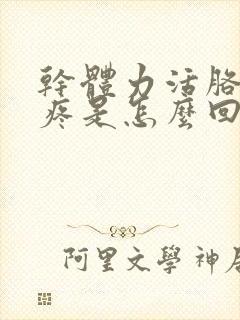 幹體力活胳
疼是怎麼回
阿里文學神居